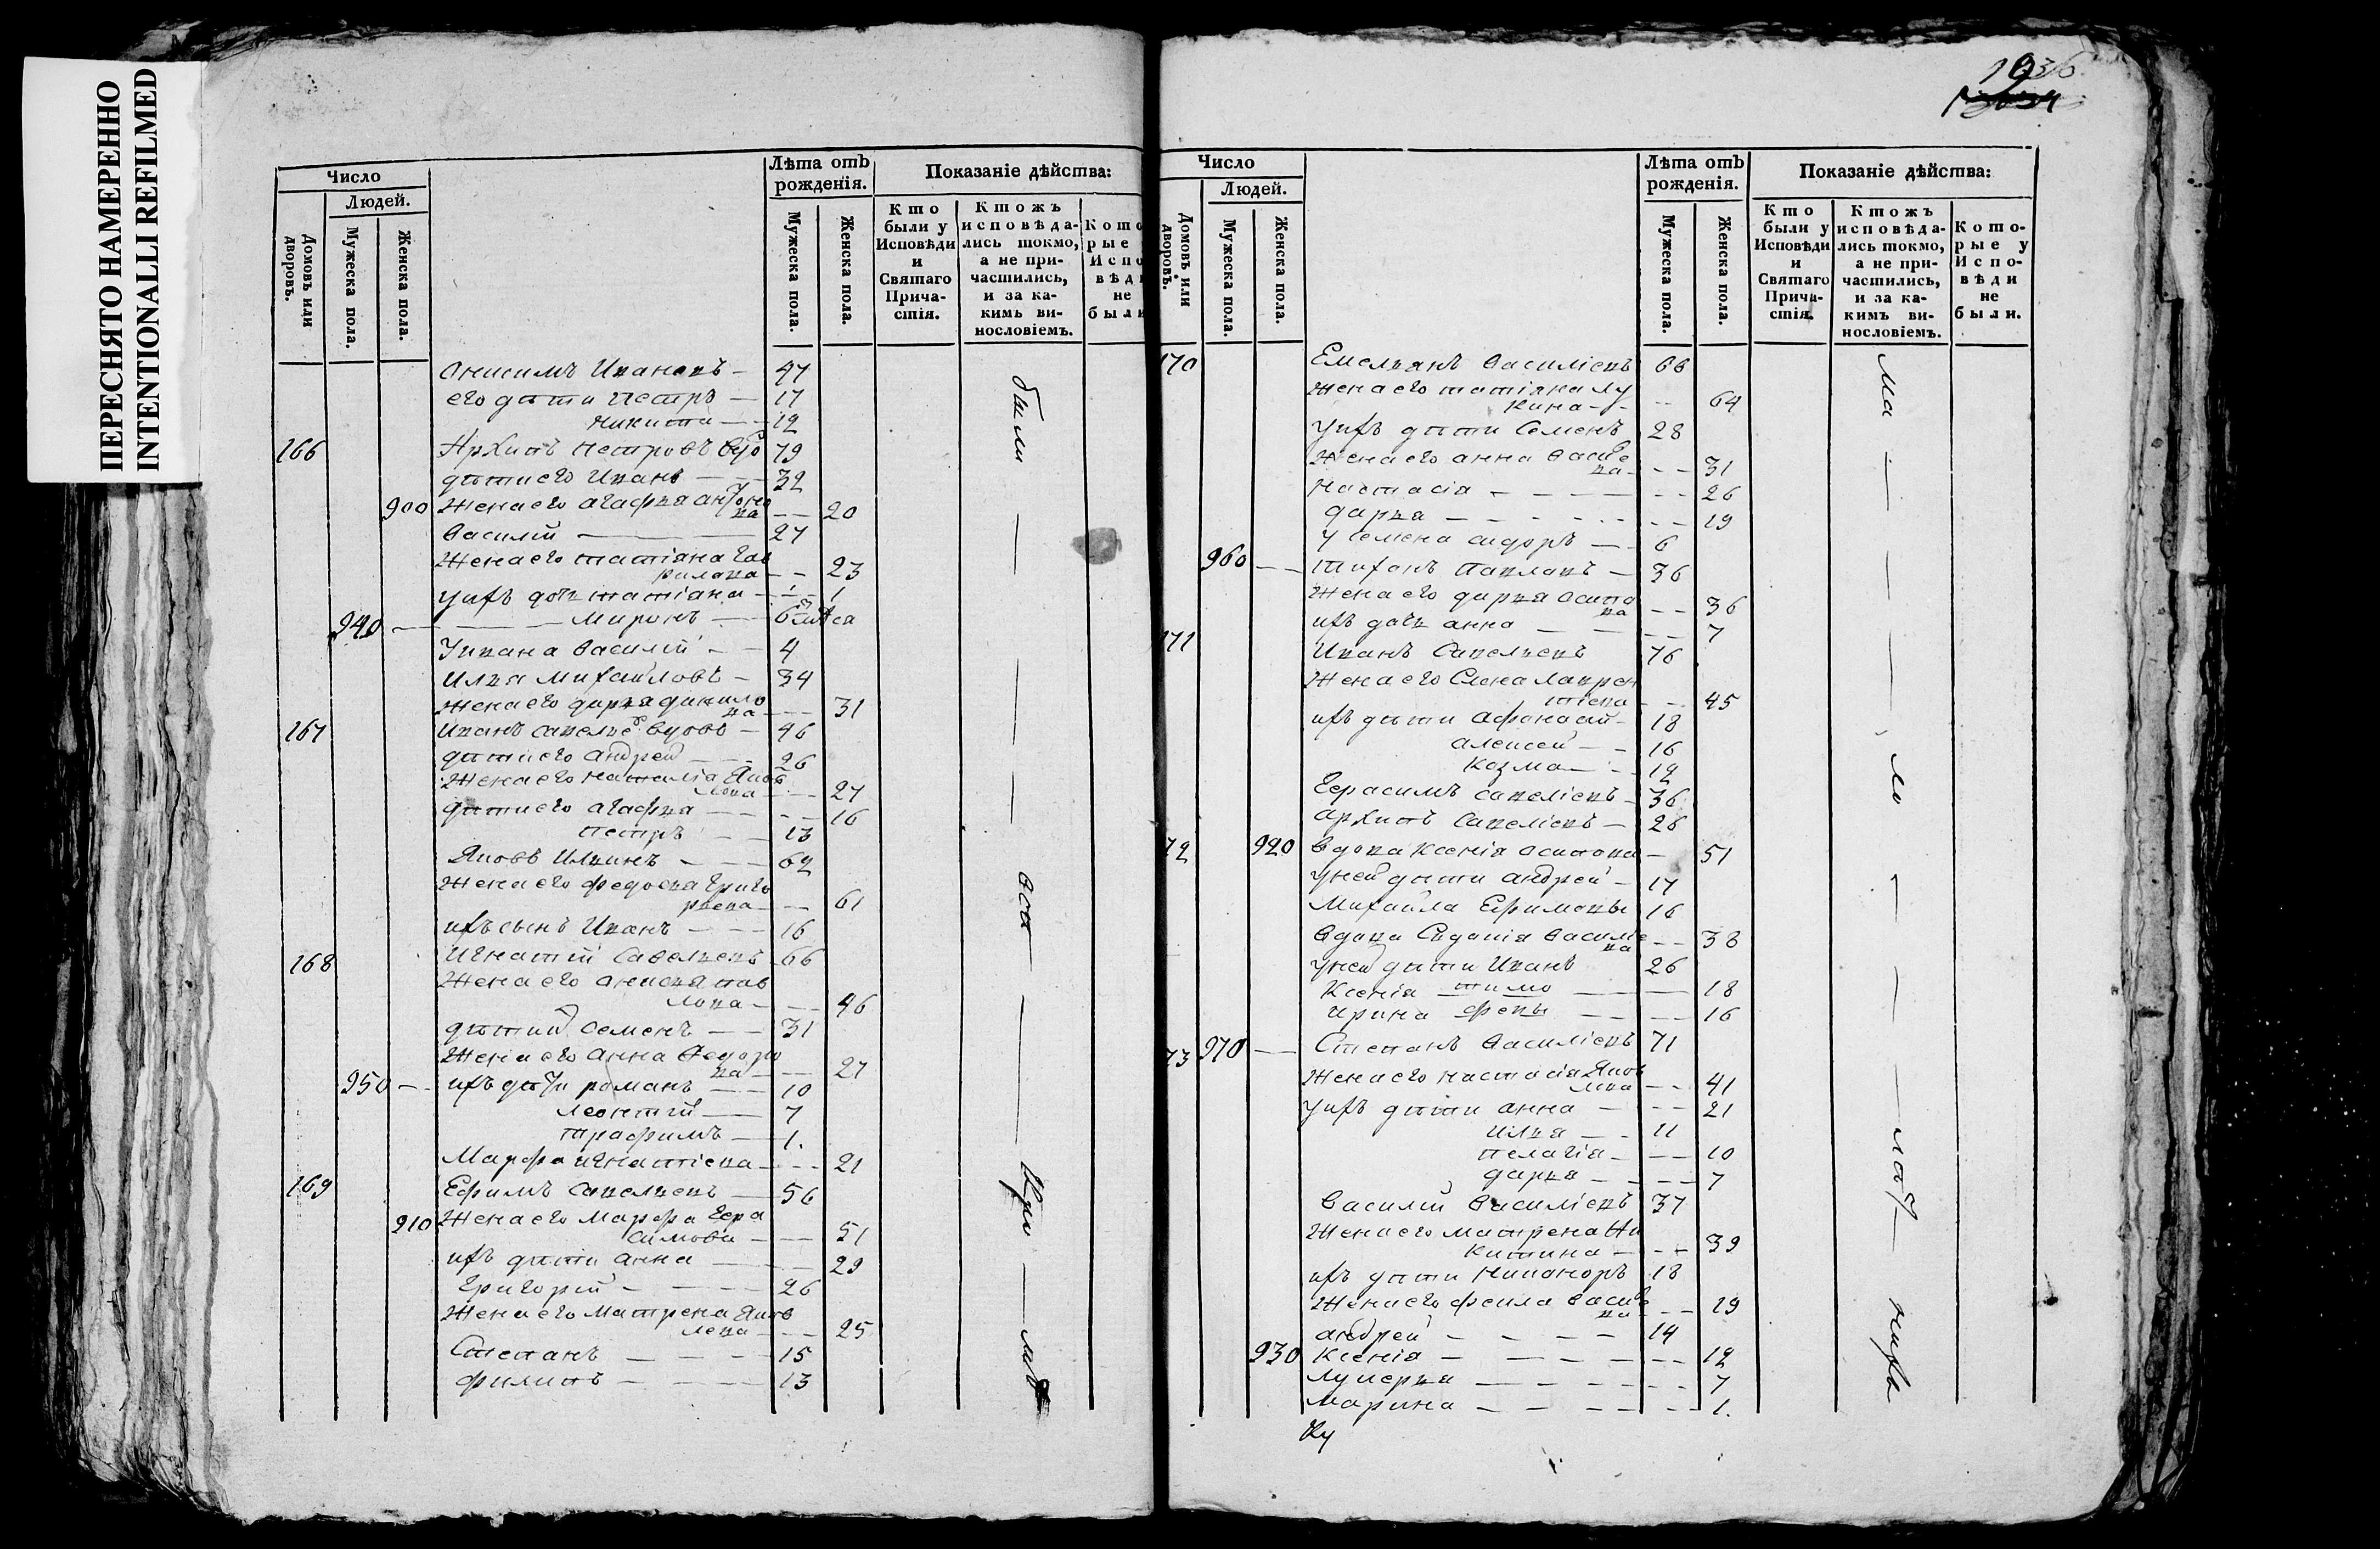 ПЕРЕСНЯТО НАМЕРЕННО
INTENTIONALLI REFILMED
Число
Лѣта отъ рожденія.
Показаніе дѣйства:
Людей.
Домовъ или дворовъ.
Мужеска пола.
Женска пола.
Мужеска пола.
Женска пола.
Кто были у Исповѣди и Святаго Причастія.
Ктожъ исповѣдались токмо, а не причастились, и за какимъ винословіемъ.
Онисимъ Ивановъ — 47
его дѣти Петръ — 17
Никита — 12
166 Архипъ Петровъ вдо 79
дѣти его Иванъ — 32
900 Жена его агафья антоно
ва — — 20
Василій — 27
Жена его татіана Гав
рилова — — 23
уихъ дочь татіана — — 1
940 — — Миронъ — 6 мѣса
Уивана Василій — 4
Илья Михайловъ — 34
Жена его дарья данило
ва — — 31
167 Иванъ савелье вдовъ — 46
дѣти его андрей — 26
Жена его Наталіа Яков
лева — — 27
дѣти его агафья — — 16
петръ — 13
Яковъ Ильинъ — 62
Жена его федосья Григо
рьева — — 61
ихъ сынъ Иванъ — 16
168 Игнатій Савельевъ 66
Жена его анисья пав
лова — — 46
дѣти ий Семенъ — 31
Жена его анна Федоро
ва — — 27
950 — ихъ дѣти романъ — 10
леонтій — 7
трафимъ — 1.
Марфа игнатіева — — 21
169 Ефимъ Савельевъ — 56
910 Жена его Марфа Гера
симова — — 51
ихъ дѣти анна — — 29
Григорій — 26
Жена его Матрена Яков
лева — — 25
Степанъ — 15
филипъ — 13
были
вса
1036
Число
Лѣта отъ рожденія.
Показаніе дѣйства:
Людей.
Домовъ или дворовъ.
Мужеска пола.
Женска пола.
Мужеска пола.
Женска пола.
Кто были у Исповѣди и Святаго Причастія.
Ктожъ исповѣдались токмо, а не причастились, и за какимъ винословіемъ.
Которые у Исповѣди не были.
170 Емельянъ Василіевъ 66
Жена его татіяна Лу
кина — — 64
Уихъ дѣти Семенъ 28
Жена его анна Василе
ва — — 31
Настасіа — — 26
дарья — — 19
У Семена сидоръ — 6
960 — — тихонъ Павловъ — 36
Жена его дарья осипо
ва — — 36
ихъ дочь анна — — 7
171 Иванъ Савельевъ 76
Жена его Елена лаврен
тіева — — 45
ихъ дѣти афонасий — 18
алексей — 16
Козма — 12
Герасимъ савеліевъ — 36
архипъ Савеліевъ — 26
72 920 вдова Ксеніа осипова — 51
Уней дѣти андрей — 17
Михайла Ефимовы 16
вдова Евдокія Василіе
ва — — 38
Уней дѣти Иванъ 26
Ксеніа тимо — 18
ирина феевы — — 16
73 970 — Степанъ Василіевъ 71
Жена его Настасіа Яков
лева — — 41
Уихъ дѣти анна — — 21
илья — 11
пелагіа — — 10
дарья — — 7
Василій Василіевъ 37
Жена его Матрена Ни
китина — — 39
ихъ дѣти Никаноръ 18
Жена его фекла Василе
ва — — 19
андрей — 14
930 Ксеніа — — 12
Лукерья — — 7
Марина — — 1.
Ку
ма
ло
лѣт
нихъ